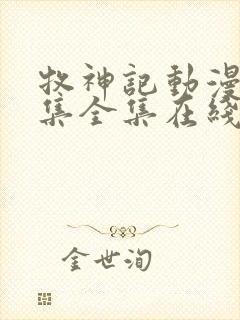 牧神記動漫
集全集在綫
金世洵